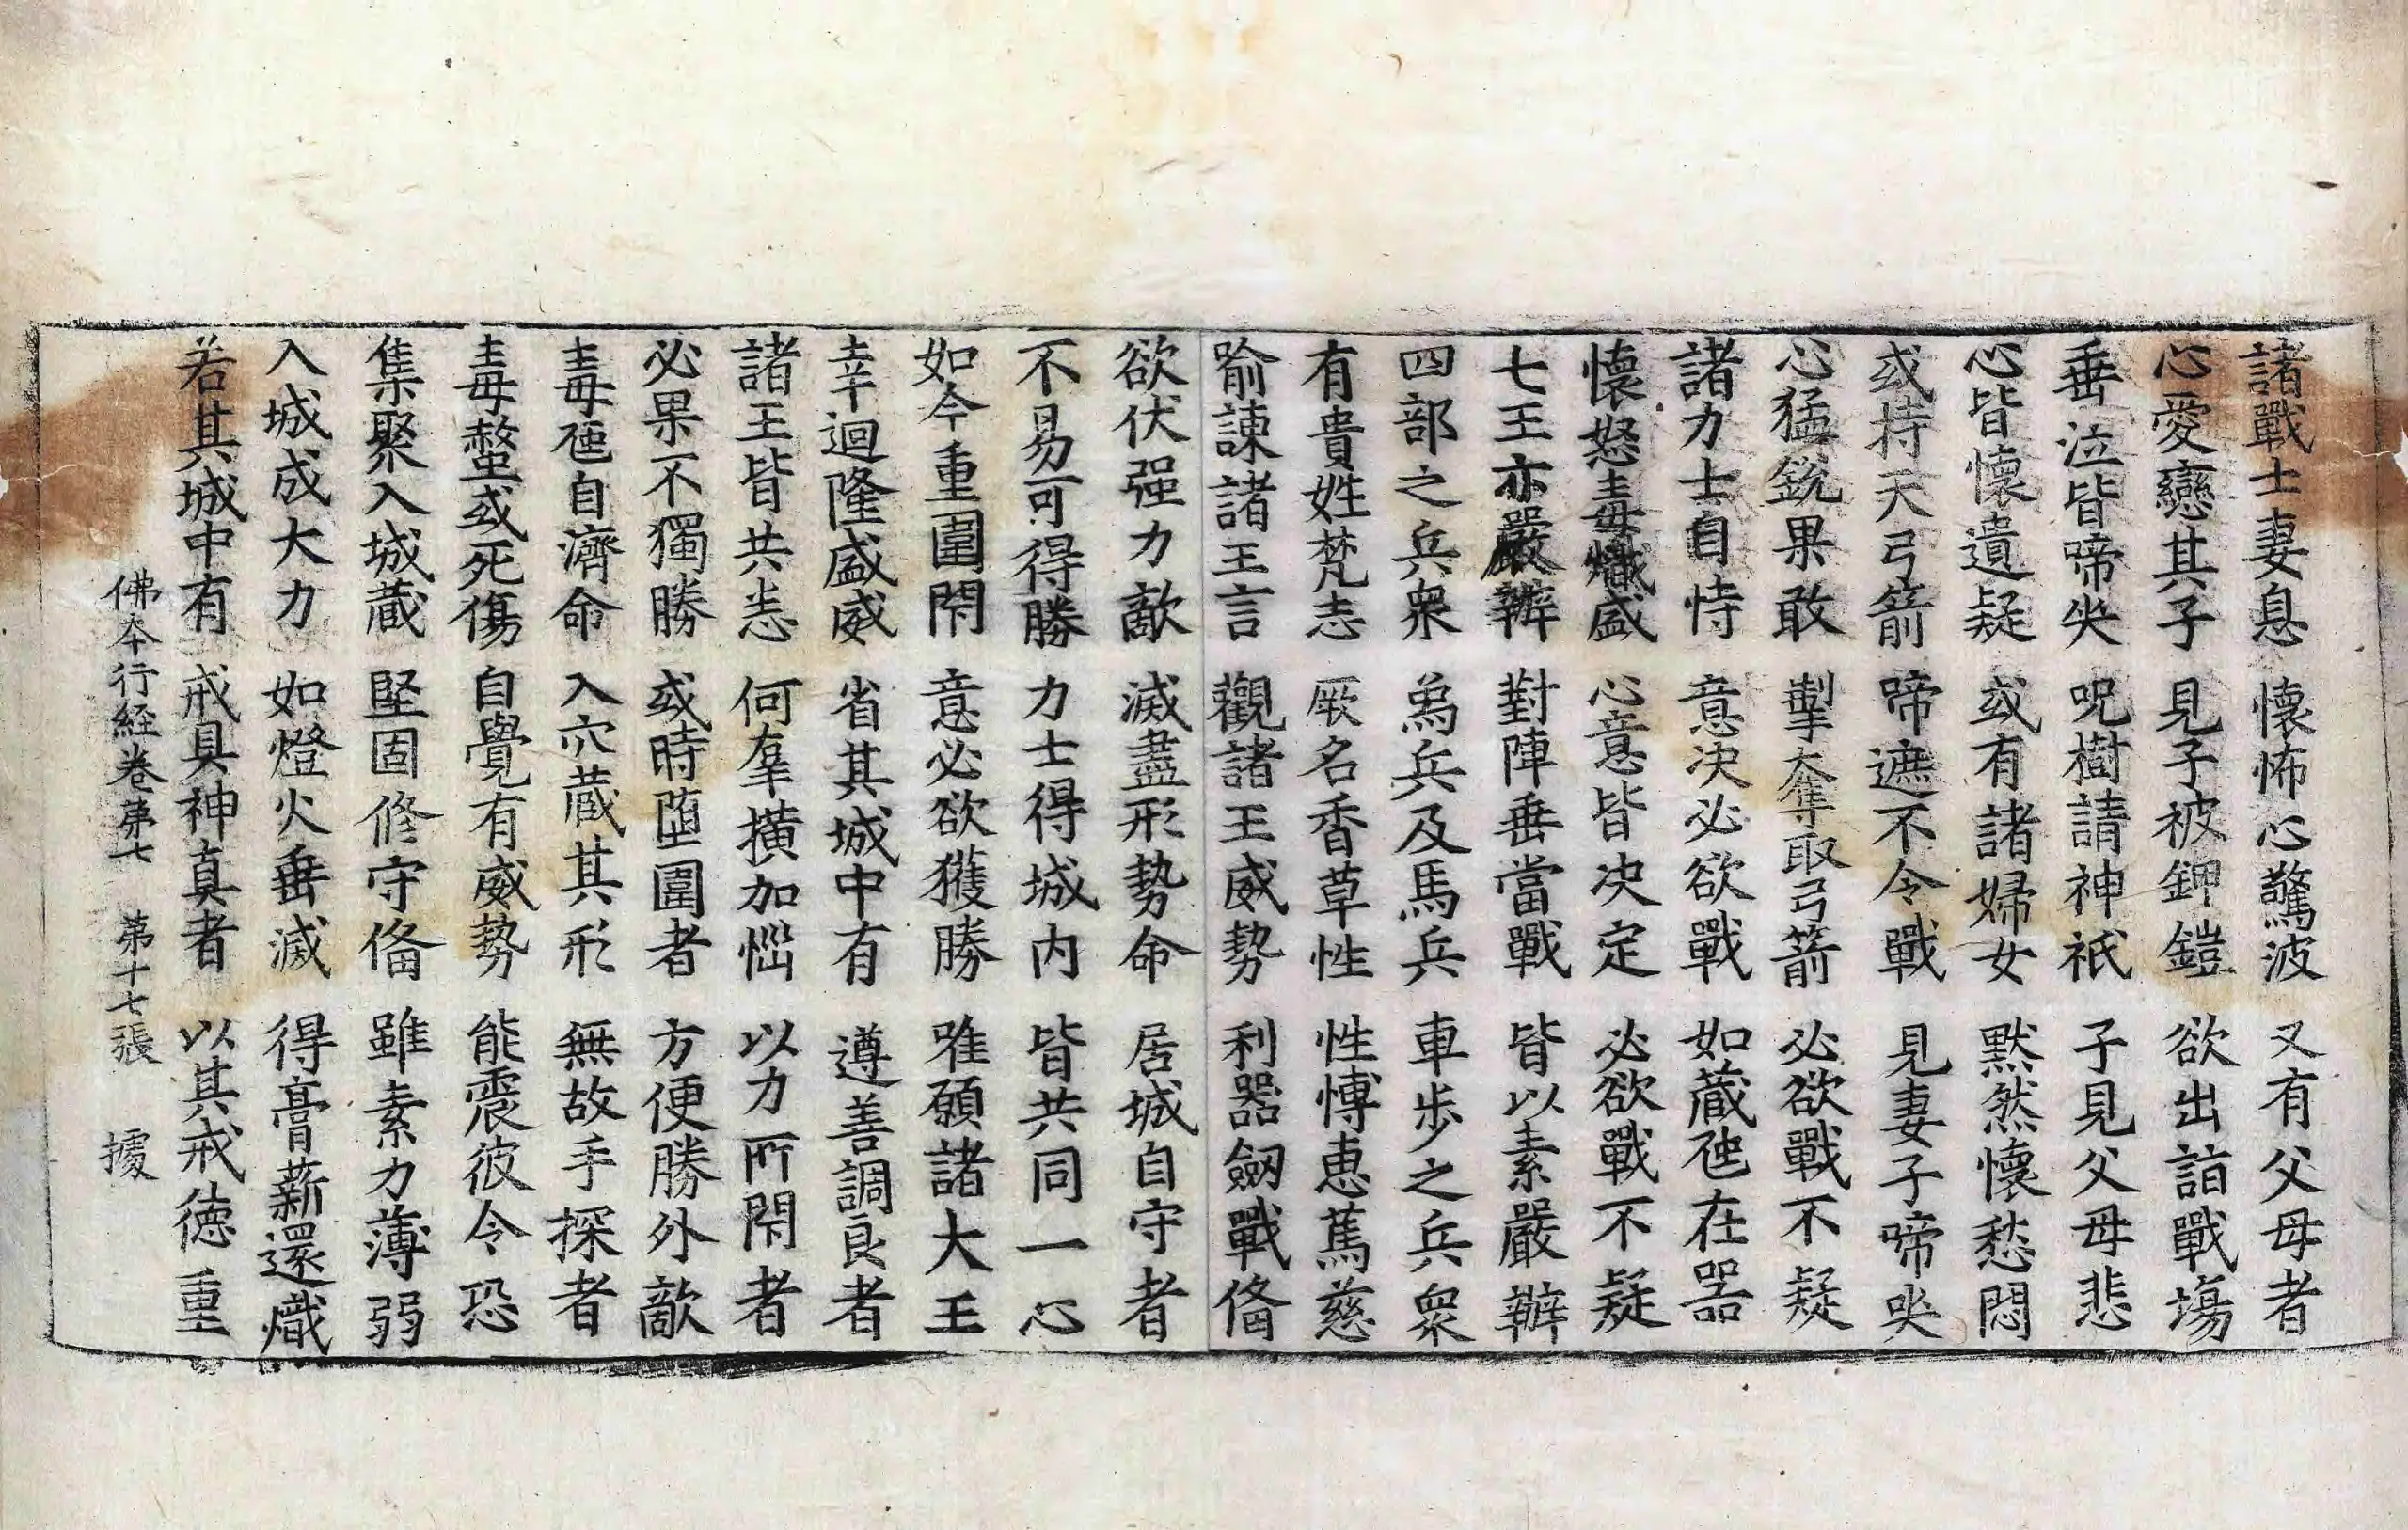 諸戰士妻息 懷怖心驚波 又有父母者
心愛戀其子 見子被鉀鎧 欲出詣戰場
垂泣皆啼哭 呪樹請神祇 子見父母悲
心皆懷遺疑 或有諸婦女 默然懷愁悶
或持天弓箭 啼遮不令戰 見妻子啼哭
心猛銳果敢 掣奪取弓箭 必欲戰不疑
諸力士自恃 意决必欲戰 如蔵虵在器
懷怒毒熾盛 心意皆决定 必欲戰不疑
七王亦嚴辦 對陣垂當戰 皆以素嚴辦
四部之兵衆 爲兵及馬兵 車步之兵衆
有貴姓梵志 厥名香草性 性愽恵篤慈
喻諫諸王言 觀諸王威勢 利器劔戰俻
欲伏强力敵 滅盡形勢命 居城自守者
不易可得勝 力士得城内 皆共同一心
如今重圍閇 意必欲獲勝 唯願諸大王
幸迴隆盛威 省其城中有 遵善調良者
諸王皆共恙 何羣撗加惱 以力所閇者
必果不獨勝 或時墮圍者 方便勝外敵
毒虵自濟命 入穴蔵其形 無故手探者
毒螫或死傷 自覺有威勢 能震彼令恐
集聚入城蔵 堅固修守俻 雖素力薄弱
入城成大力 如燈火垂滅 得膏薪還熾
若其城中有 戒具神真者 以其戒德重
佛本行経卷苐七 苐十七張 㩀